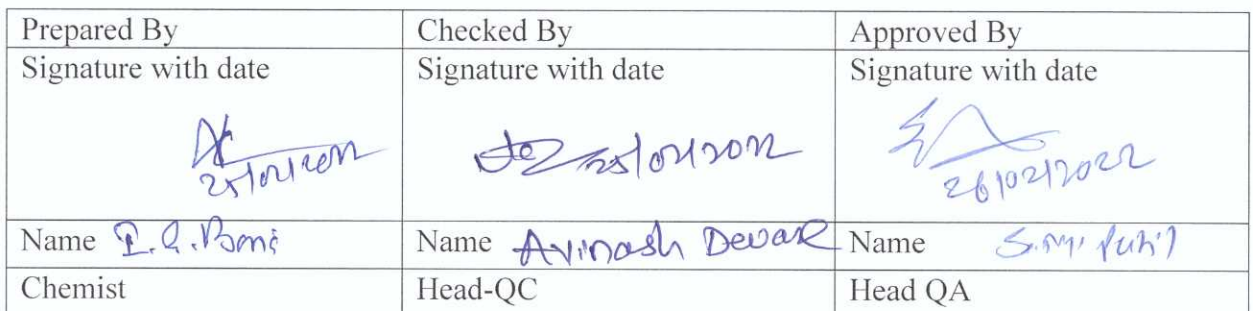 Prepared By Checked By Approved By
Signature with date Signature with date Signature with date
25/02/2022 25/02/2022 26/02/2022
Name Name Avinash Deware Name S.M. Patil
Chemist Head-QC Head QA